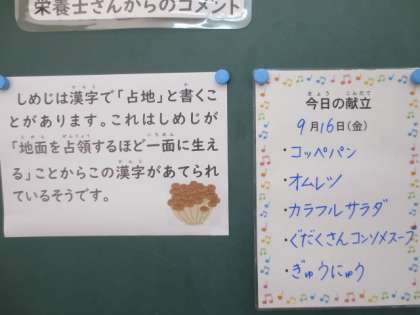 栄養士さんからのコメント
しめじは漢字で「占地」と書くこ
とがあります。これはしめじが
「地面を占領するほど一面に生え
る」ことからこの漢字があてられ
ているそうです。
今日の献立
9月16日(金)
・コッペパン
・オムレツ
・カラフルサラダ
・ぐだくさんコンソメスープ
・ぎゅうにゅう